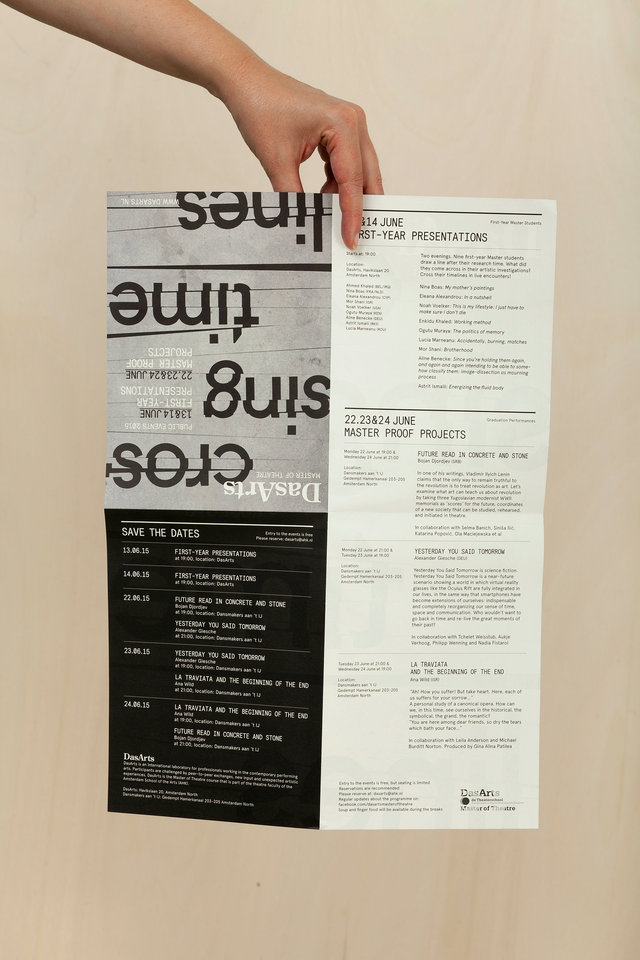 WWW.DASARTS.NL
lines
time
sing
cros-
PUBLIC EVENTS 2015
13&14 JUNE
FIRST-YEAR
PRESENTATIONS
22.23&24 JUNE
MASTER PROOF
PROJECTS
DasArts
MASTER OF THEATRE
SAVE THE DATES
Entry to the events is free
Please reserve: dasarts@ahk.nl
13.06.15
FIRST-YEAR PRESENTATIONS
at 19:00, location: DasArts
14.06.15
FIRST-YEAR PRESENTATIONS
at 19:00, location: DasArts
22.06.15
FUTURE READ IN CONCRETE AND STONE
Bojan Djordjev
at 19:00, location: Dansmakers aan 't IJ
YESTERDAY YOU SAID TOMORROW
Alexander Giesche
at 21:00, location: Dansmakers aan 't IJ
23.06.15
YESTERDAY YOU SAID TOMORROW
Alexander Giesche
at 19:00, location: Dansmakers aan 't IJ
LA TRAVIATA AND THE BEGINNING OF THE END
Ana Wild
at 21:00, location: Dansmakers aan 't IJ
24.06.15
LA TRAVIATA AND THE BEGINNING OF THE END
Ana Wild
at 19:00, location: Dansmakers aan 't IJ
FUTURE READ IN CONCRETE AND STONE
Bojan Djordjev
at 21:00, location: Dansmakers aan 't IJ
DasArts
DasArts is an international laboratory for professionals working in the contemporary performing
arts. Participants are challenged by peer-to-peer exchanges, new input and unexpected artistic
experiences. DasArts is the Master of Theatre course that is part of the theatre faculty of the
Amsterdam School of the Arts (AHK).
DasArts: Havikslaan 20, Amsterdam North
Dansmakers aan 't IJ: Gedempt Hamerkanaal 203-205 Amsterdam North
&14 JUNE
RST-YEAR PRESENTATIONS
First-Year Master Students
Starts at: 19:00
Location:
DasArts, Havikslaan 20
Amsterdam North
Ahmed Khaled
Nina Boas
Eleana Alexandrou
Mor Shani
Noah Voelker
Ogutu Muraya
Aline Benecke
Astrit Ismaili
Lucia Marneanu
Two evenings. Nine first-year Master students
draw a line after their research time. What did
they come across in their artistic investigations?
Cross their timelines in live encounters!
Nina Boas: My mother's paintings
Eleana Alexandrou: In a nutshell
Noah Voelker: This is my lifestyle: I just have to
make sure I don't die
Enkidu Khaled: Working method
Ogutu Muraya: The politics of memory
Lucia Marneanu: Accidentally, burning, matches
Mor Shani: Brotherhood
Aline Benecke: Since you're holding them again,
and again and again intending to be able to some-
how classify them: image-dissection as mourning
process
Astrit Ismaili: Energizing the fluid body
22.23&24 JUNE
MASTER PROOF PROJECTS
Graduation Performances
Monday 22 June at 19:00 &
Wednesday 24 June at 21:00
Location:
Dansmakers aan 't IJ
Gedempt Hamerkanaal 203-205
Amsterdam North
FUTURE READ IN CONCRETE AND STONE
Bojan Djordjev (SRB)
In one of his writings, Vladimir Ilyich Lenin
claims that the only way to remain truthful to
the revolution is to treat revolution as art. Let's
examine what art can teach us about revolution
by taking three Yugoslavian modernist WWII
memorials as 'scores' for the future, coordinates
of a new society that can be studied, rehearsed,
and initiated in theatre.
In collaboration with Selma Banich, Siniša Ilić,
Katarina Popović, Ola Maciejewska et al
Monday 22 June at 21:00 &
Tuesday 23 June at 19:00
Location:
Dansmakers aan 't IJ
Gedempt Hamerkanaal 203-205
Amsterdam North
YESTERDAY YOU SAID TOMORROW
Alexander Giesche (GER)
Yesterday You Said Tomorrow is science fiction.
Yesterday You Said Tomorrow is a near-future
scenario showing a world in which virtual reality
glasses like the Oculus Rift are fully integrated in
our lives, in the same way that smartphones have
become extensions of ourselves: indispensable
and completely reorganizing our sense of time,
space and communication. Who wouldn't want to
go back in time and re-live the great moments of
their past?
In collaboration with Tchelet Weisstub, Aukje
Verhoog, Philipp Wenning and Nadia Fistarol
Tuesday 23 June at 21:00 &
Wednesday 24 June at 19:00
Location:
Dansmakers aan 't IJ
Gedempt Hamerkanaal 203-205
Amsterdam North
LA TRAVIATA
AND THE BEGINNING OF THE END
Ana Wild (ISR)
"Ah! How you suffer! But take heart. Here, each of
us suffers for your sorrow..."
A personal study of a canonical opera. How can
we, in this time, see ourselves in the historical, the
symbolical, the grand, the romantic?
"You are here among dear friends, so dry the tears
which bath your face..."
In collaboration with Leila Anderson and Michael
Burditt Norton. Produced by Gina Alina Patilea
Entry to the events is free, but seating is limited
Reservations are recommended
Please reserve at: dasarts@ahk.nl
Regular updates about the programme on
facebook.com/dasartsmasteroftheatre
Soup and finger food will be available during the breaks
DasArts
de Theaterschool
Master of Theatre